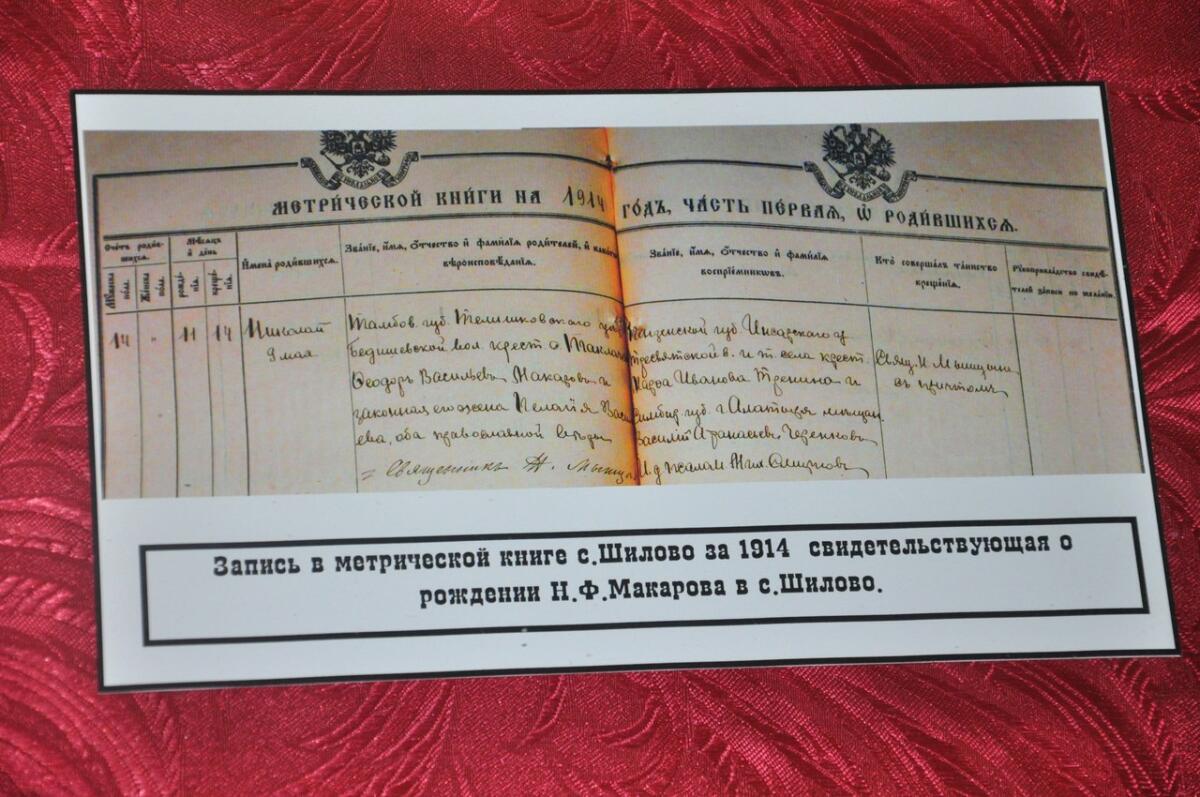 МЕТРИ́ЧЕСКОЙ КНИ́ГИ НА 1914 ГО́ДЪ, ЧА́СТЬ ПЕ́РВАЯ, Ѿ РОДИ́ВШИХСѦ.
Сче́тъ роди́вшихсѧ.
Му́жеска по́ла.
Же́нска по́ла.
Мѣ́сѧцъ и҆ де́нь
рожде́нїѧ.
креще́нїѧ.
И҆мена̀ роди́вшихсѧ.
Зва́нїе, и҆́мѧ, ѻ҆́тчество и҆ фами́лїѧ роди́телей, и҆ како́гѡ
вѣроисповѣ́данїѧ.
Зва́нїе, и҆́мѧ, ѻ҆́тчество и҆ фами́лїѧ
воспрїе́мникѡвъ.
Кто̀ соверша́лъ та́инство
креще́нїѧ.
Рꙋкоприкла́дство свидѣ́-
телей за́писи по жела́нїю.
14 " 11 14
Николай
9 мая
Тамбов. губ.
вол. крест. с.
Ѳеодоръ Васильевъ Макаровъ и
законная его жена Пелагія
оба православной вѣры
Священникъ
Пензенской губ. Инсарскаго у.
в. и т. села крест.
Иванова и
Симбир. губ. г. Алатыря мѣщан.
Василій Аѳанасьевъ
псалом. Мих. Смирновъ
Свящ. Н. Мышцын
съ причтомъ
Запись в метрической книге с.Шилово за 1914 свидетельствующая о
рождении Н.Ф.Макарова в с.Шилово.